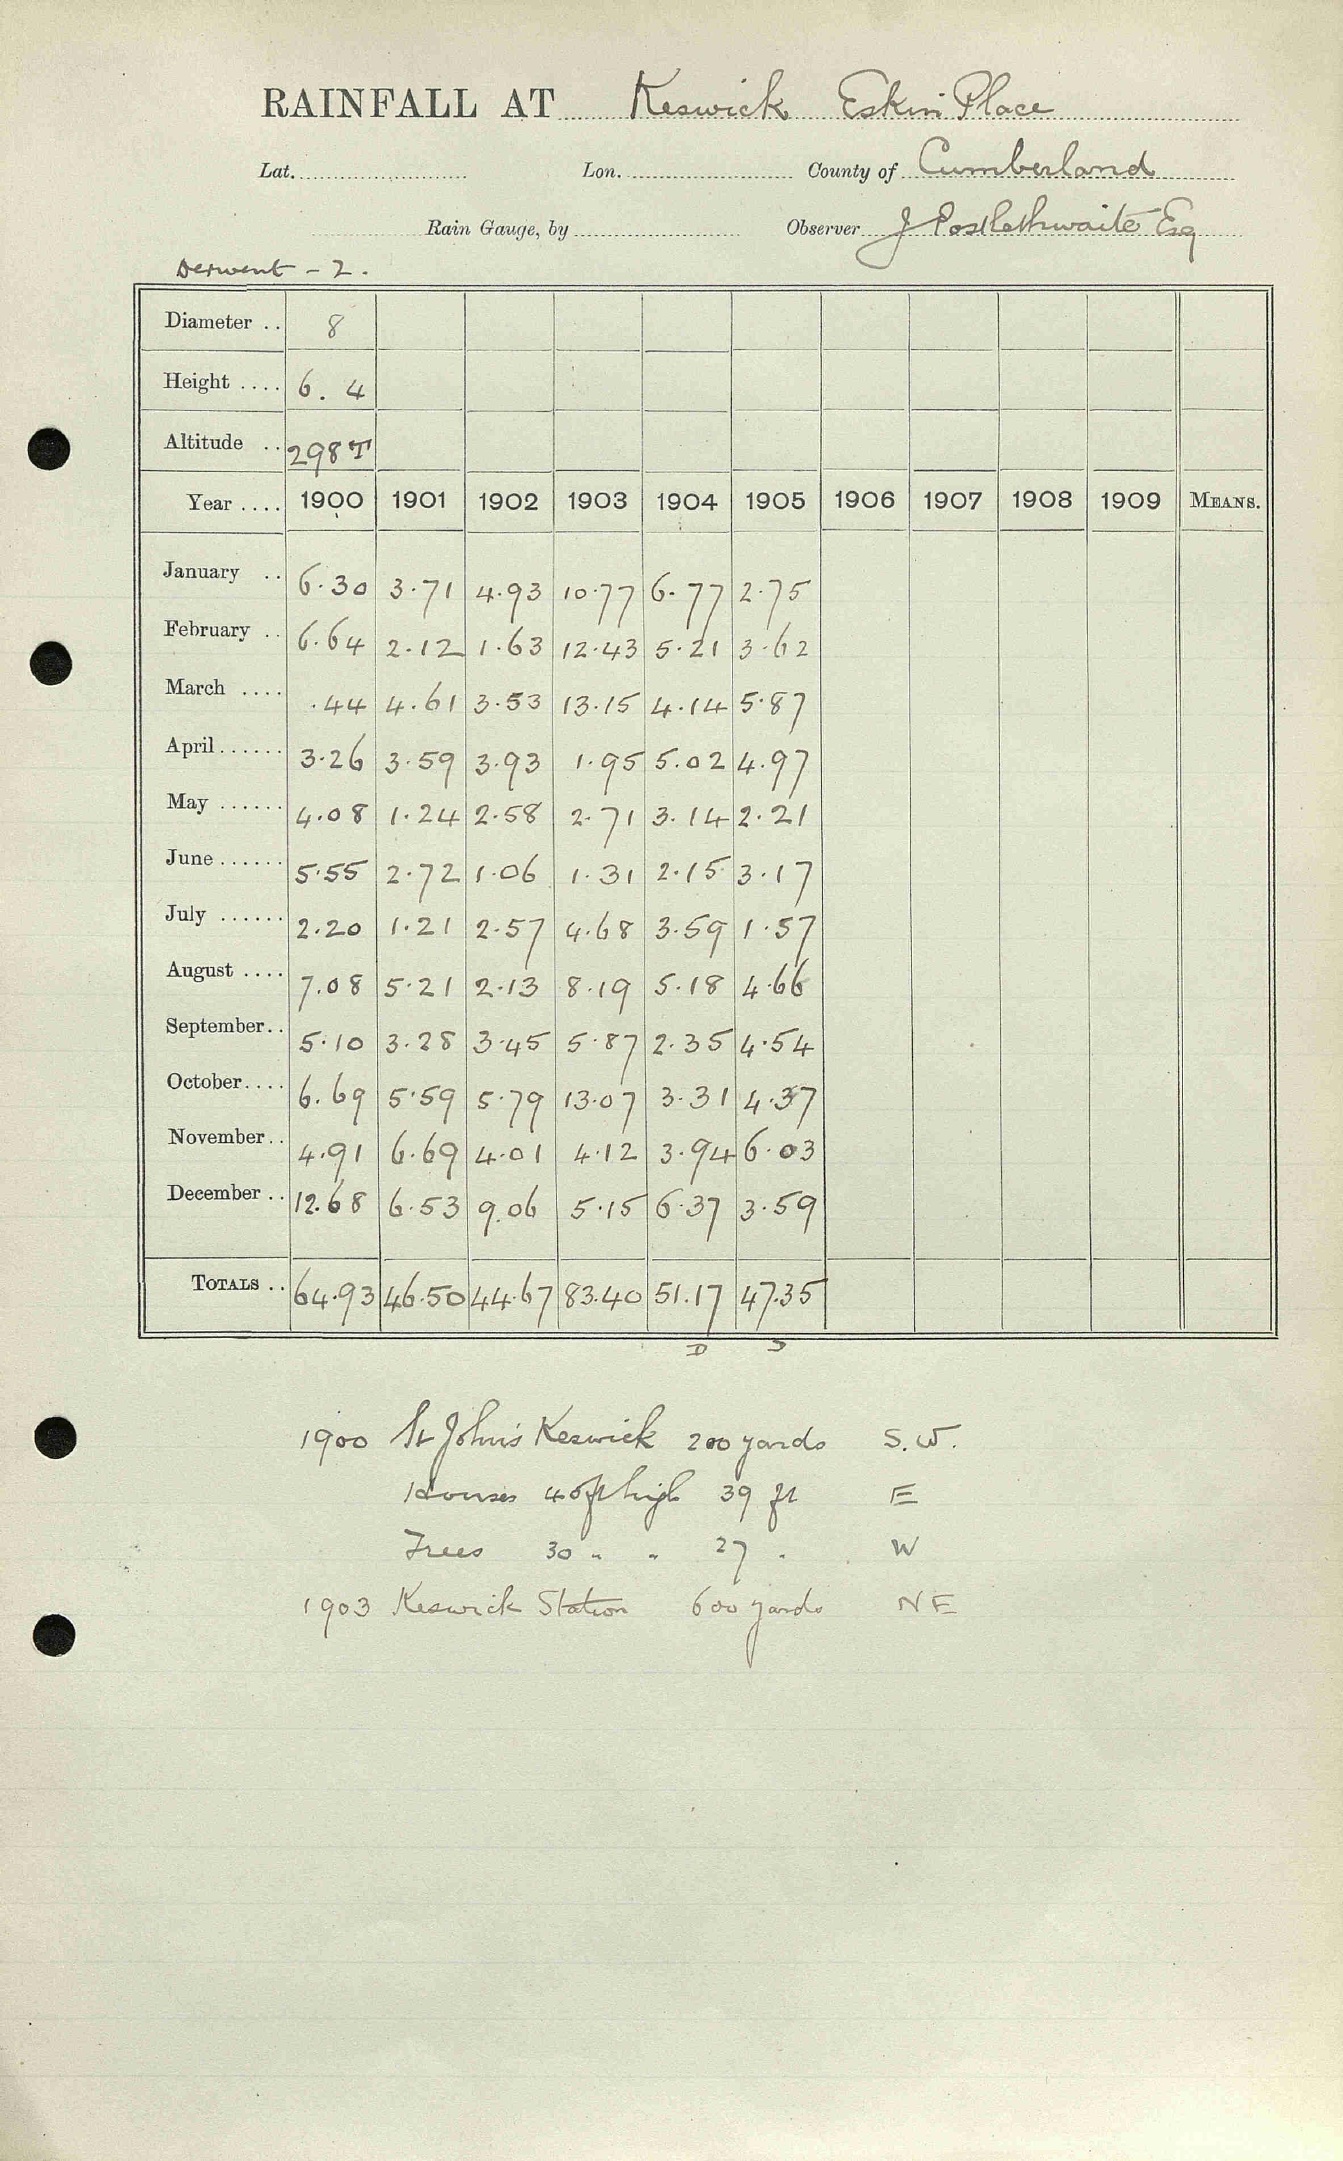 RAINFALL AT Keswick Eskin Place
Lat. Lon. County of Cumberland
Rain Gauge, by Observer J Postlethwaite Esq
Derwent - 2.
Diameter .. 8
Height .... 6. 4
Altitude .. 298 T
Year .... 1900 1901 1902 1903 1904 1905 1906 1907 1908 1909 MEANS.
January .. 6.30 3.71 4.93 10.77 6.77 2.75
February .. 6.64 2.12 1.63 12.43 5.21 3.62
March .... .44 4.61 3.53 13.15 4.14 5.87
April ...... 3.26 3.59 3.93 1.95 5.02 4.97
May ...... 4.08 1.24 2.58 2.71 3.14 2.21
June ...... 5.55 2.72 1.06 1.31 2.15 3.17
July ...... 2.20 1.21 2.57 4.68 3.59 1.57
August .... 7.08 5.21 2.13 8.19 5.18 4.66
September.. 5.10 3.28 3.45 5.87 2.35 4.54
October.... 6.69 5.59 5.79 13.07 3.31 4.37
November.. 4.91 6.69 4.01 4.12 3.94 6.03
December .. 12.68 6.53 9.06 5.15 6.37 3.59
TOTALS .. 64.93 46.50 44.67 83.40 51.17 47.35
D
1900 St John's Keswick 200 yards S.W.
Houses 40 ft high 39 ft E
Trees 30 " " 27 " W
1903 Keswick Station 600 yards NE